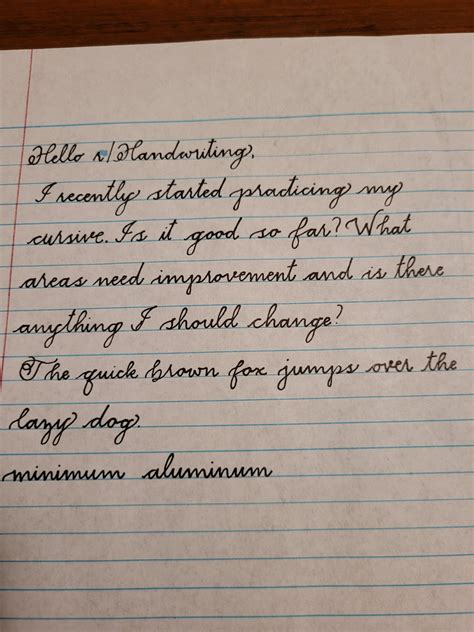 Hello r/Handwriting,
I recently started practicing my
cursive. Is it good so far? What
areas need improvement and is there
anything I should change?
The quick brown fox jumps over the
lazy dog.
minimum aluminum